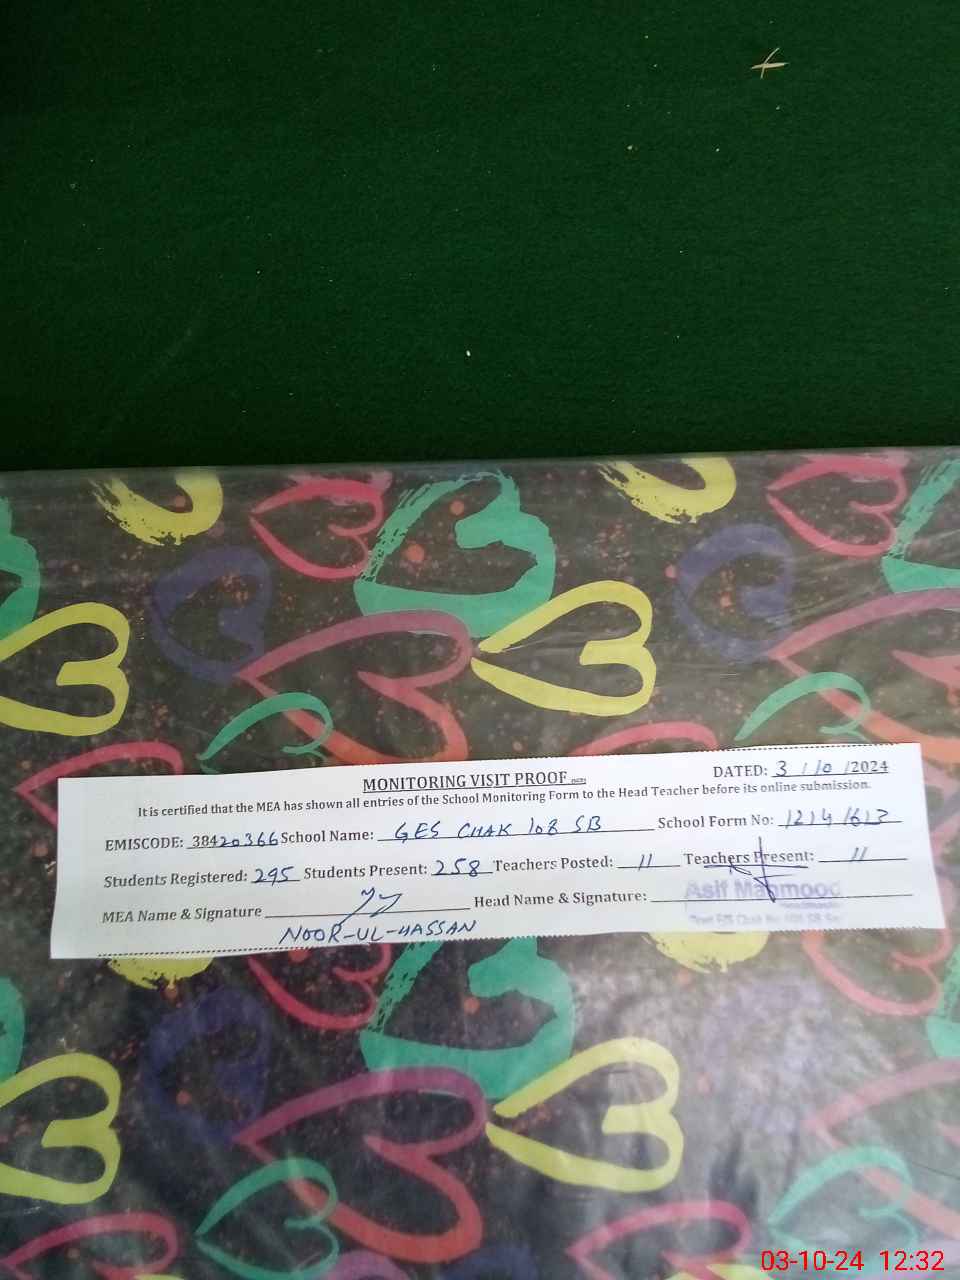 MONITORING VISIT PROOF
DATED: 3 / 10 /2024
It is certified that the MEA has shown all entries of the School Monitoring Form to the Head Teacher before its online submission.
EMISCODE: 38420366 School Name: GES CHAK 108 SB School Form No: 1214 1613
Students Registered: 295 Students Present: 258 Teachers Posted: 11 Teachers Present: 11
MEA Name & Signature Head Name & Signature:
NOOR-UL-HASSAN
Asif Mahmood
03-10-24 12:32